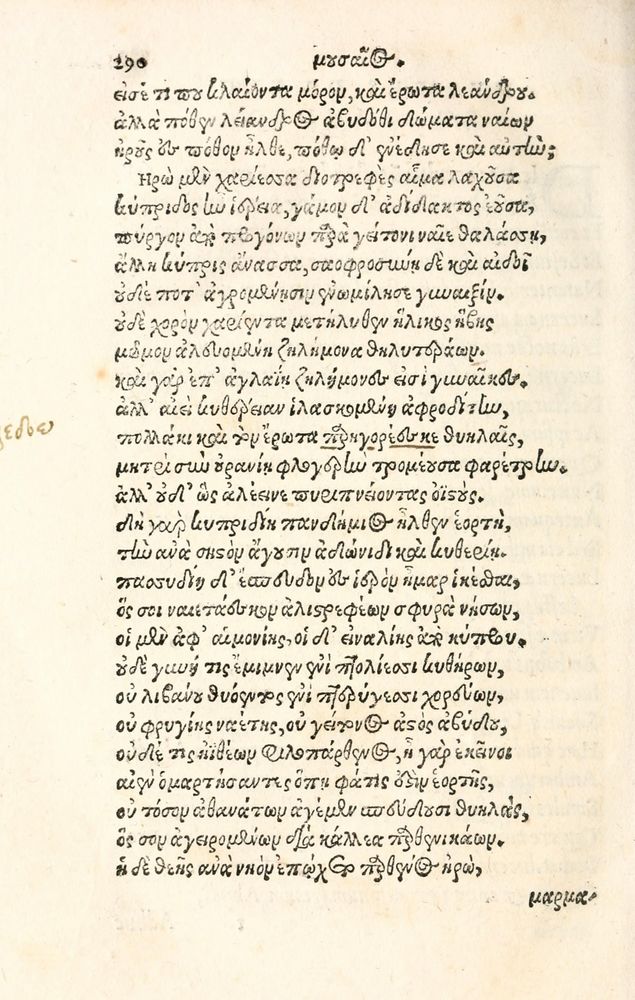 290 μουσαῖος.
εἰσέτι που κλαίοντα μόρον, καὶ ἔρωτα λεάνδρου.
ἀλλὰ πόθεν λείανδρος ἀβυδόθι δώματα ναίων
ἡροῦς ἐς πόθον ἦλθε, πόθῳ δ' ἐνέδησε καὶ αὐτὴν;
Ηρὼ μὲν χαρίεσσα διοτρεφὲς αἷμα λαχοῦσα
κύπριδος ἦν ἱέρεια, γάμων δ' ἀδίδακτος ἐοῦσα,
πύργον ἀπὸ προγόνων παρὰ γείτονι ναῖε θαλάσσῃ,
ἄλλη κύπρις ἄνασσα, σαοφροσύνῃ δὲ καὶ αἰδοῖ
οὐδέ ποτ' ἀγρομένῃσιν ἐνωμίλησε γυναιξίν.
οὐδὲ χορὸν χαρίεντα μετήλυθεν ἥλικος ἥβης
μῶμον ἀλευομένη ζηλήμονα θηλυτεράων.
καὶ γὰρ ἐπ' ἀγλαΐῃ ζηλήμονές εἰσὶ γυναῖκες.
ἀλλ' αἰεὶ κυθέρειαν ἱλασκομένη ἀφροδίτην,
πολλάκι καὶ τὸν ἔρωτα παρηγορέεσκε θυηλαῖς,
μητρὶ σὺν οὐρανίῃ φλογερὴν τρομέουσα φαρέτρην.
ἀλλ' οὐδ' ὣς ἀλέεινε πυριπνείοντας ὀϊστούς.
δὴ γὰρ κυπριδίη πανδήμιος ἦλθεν ἑορτὴ,
τὴν ἀνὰ σηστὸν ἄγουσιν ἀδώνιδι καὶ κυθερείῃ.
πασσυδίῃ δ' ἔσπευδον ἐς ἱερὸν ἦμαρ ἱκέσθαι,
ὅσσοι ναιετάεσκον ἁλιστρεφέων σφυρὰ νήσων,
οἱ μὲν ἀφ' αἱμονίης, οἱ δ' εἰναλίης ἀπὸ κύπρου.
οὐδὲ γυνή τις ἔμιμνεν ἐνὶ πτολίεσσι κυθήρων,
οὐ λιβάνου θυόεντος ἐνὶ πτερύγεσσι χορεύων,
οὐ φρυγίης ναέτης, οὐ γείτονος ἀστὸς ἀβύδου,
οὐδέ τις ἠϊθέων φιλοπάρθενος, ἦ γὰρ ἐκεῖνοι
αἰὲν ὁμαρτήσαντες ὅπη φάτις ἐστὶν ἑορτῆς,
οὐ τόσον ἀθανάτων ἀγέμεν σπεύδουσι θυηλὰς,
ὅσσον ἀγειρομένων διὰ κάλλεα παρθενικάων.
ἡ δὲ θεῆς ἀνὰ νηὸν ἐπῴχετο παρθένος ἡρὼ,
μαρμα-